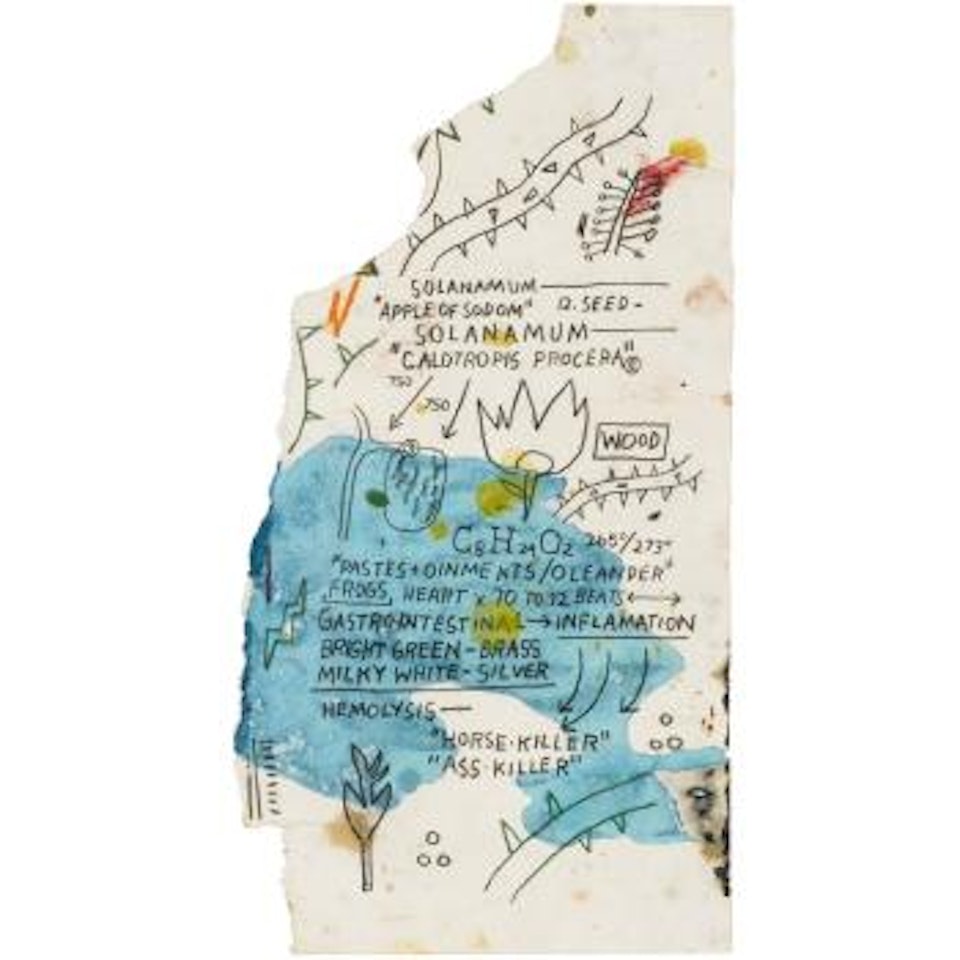 SOLANAMUM
"APPLE OF SODOM" 12. SEED -
SOLANAMUM
"CALOTROPIS PROCERA"©
750
750
WOOD
C8H24O2 265°/273°
"PASTES + OINMENTS/OLEANDER"
FROGS, HEART x 70 TO 12 BEATS
GASTROINTESTINAL → INFLAMATION
BRIGHT GREEN - BRASS
MILKY WHITE - SILVER
HEMOLYSIS —
"HORSE·KILLER"
"ASS·KILLER"